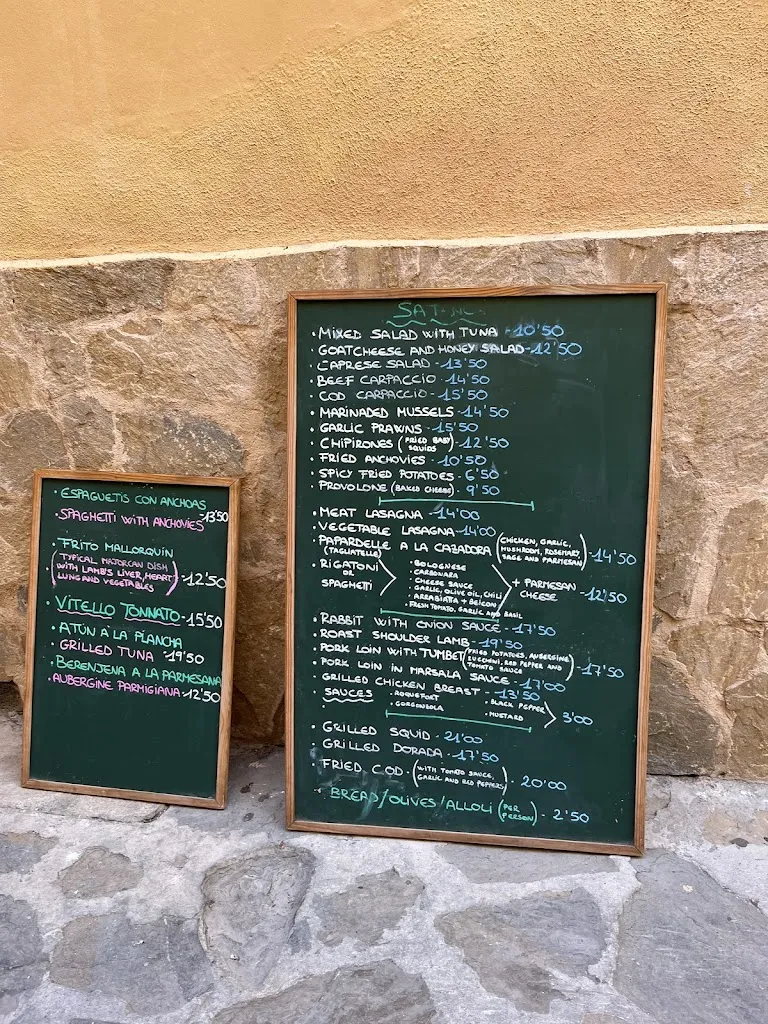 · ESPAGUETIS CON ANCHOAS
· SPAGHETTI WITH ANCHOVIES - 13'50
· FRITO MALLORQUIN
(TYPICAL MAJORCAN DISH
WITH LAMB'S LIVER, HEART,
LUNG AND VEGETABLES) - 12'50
· VITELLO TONNATO - 15'50
· ATUN A LA PLANCHA
· GRILLED TUNA - 19'50
· BERENJENA A LA PARMESANA
· AUBERGINE PARMIGIANA - 12'50
· MIXED SALAD WITH TUNA - 10'50
· GOATCHEESE AND HONEY SALAD - 12'50
· CAPRESE SALAD - 13'50
· BEEF CARPACCIO - 14'50
· COD CARPACCIO - 15'50
· MARINADED MUSSELS - 14'50
· GARLIC PRAWNS - 15'50
· CHIPIRONES (FRIED BABY SQUIDS) - 12'50
· FRIED ANCHOVIES - 10'50
· SPICY FRIED POTATOES - 6'50
· PROVOLONE (BAKED CHEESE) - 9'50
· MEAT LASAGNA - 14'00
· VEGETABLE LASAGNA - 14'00
· PAPARDELLE A LA CAZADORA (CHICKEN, GARLIC,
(TAGLIATELLE) MUSHROOM, ROSEMARY,
SAGE AND PARMESAN) - 14'50
· RIGATONI
OR
SPAGHETTI
· BOLOGNESE
· CARBONARA
· CHEESE SAUCE
· GARLIC, OLIVE OIL, CHILI
· ARRABIATA + BEICON
· FRESH TOMATO, GARLIC AND BASIL
+ PARMESAN
CHEESE - 12'50
· RABBIT WITH ONION SAUCE - 17'50
· ROAST SHOULDER LAMB - 19'50
· PORK LOIN WITH TUMBET (FRIED POTATOES, AUBERGINE,
ZUCCHINI, RED PEPPER AND
TOMATO SAUCE) - 17'50
· PORK LOIN IN MARSALA SAUCE - 17'00
· GRILLED CHICKEN BREAST - 13'50
· SAUCES · ROQUEFORT · BLACK PEPPER
· GORGONZOLA · MUSTARD 3'00
· GRILLED SQUID - 21'00
· GRILLED DORADA - 17'50
FRIED COD - (WITH TOMATO SAUCE,
GARLIC AND RED PEPPERS) - 20'00
· BREAD/OLIVES/ALLOLI (PER
PERSON) - 2'50